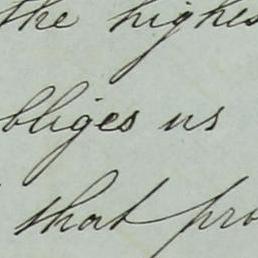 the highes
bliges us
that pro